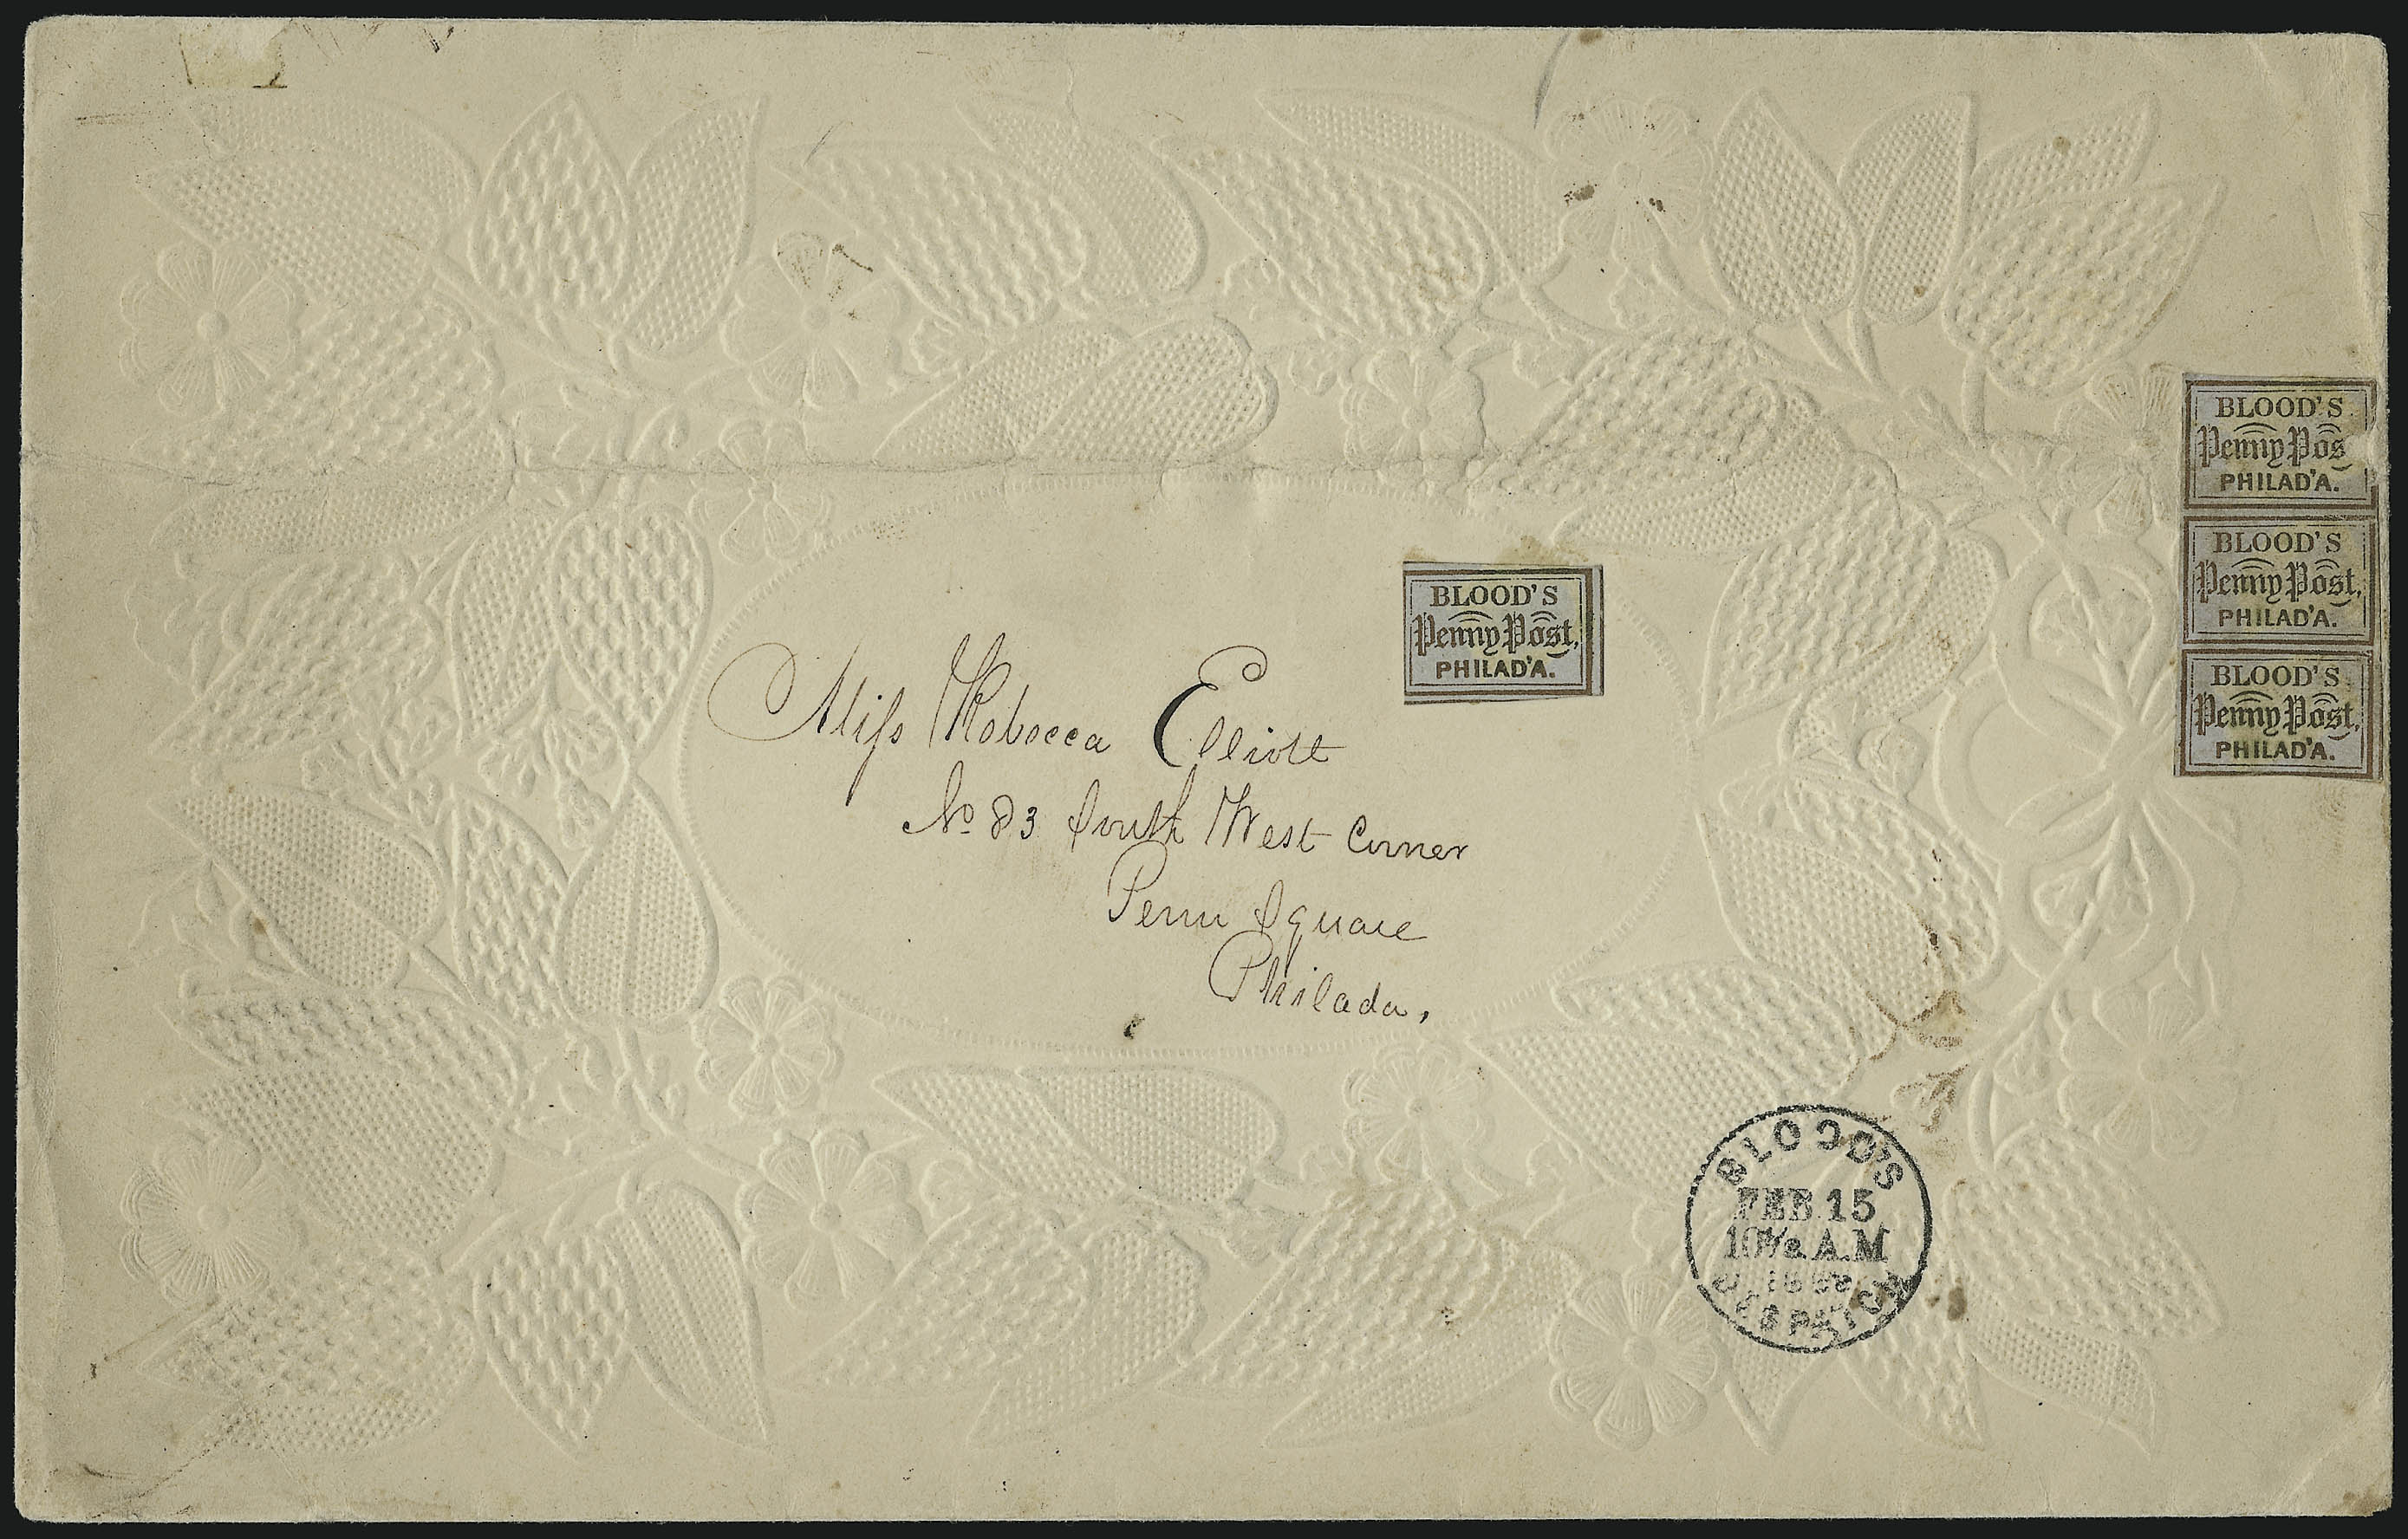 BLOOD'S
Penny Pos
PHILAD'A.
BLOOD'S
Penny Post,
PHILAD'A.
BLOOD'S
Penny Post,
PHILAD'A.
BLOOD'S
Penny Post,
PHILAD'A.
Miss Rebecca Elliott
No 83 South West Corner
Penn Square
Philada,
BLOOD'S
FEB 15
10½ A.M
DESPATCH